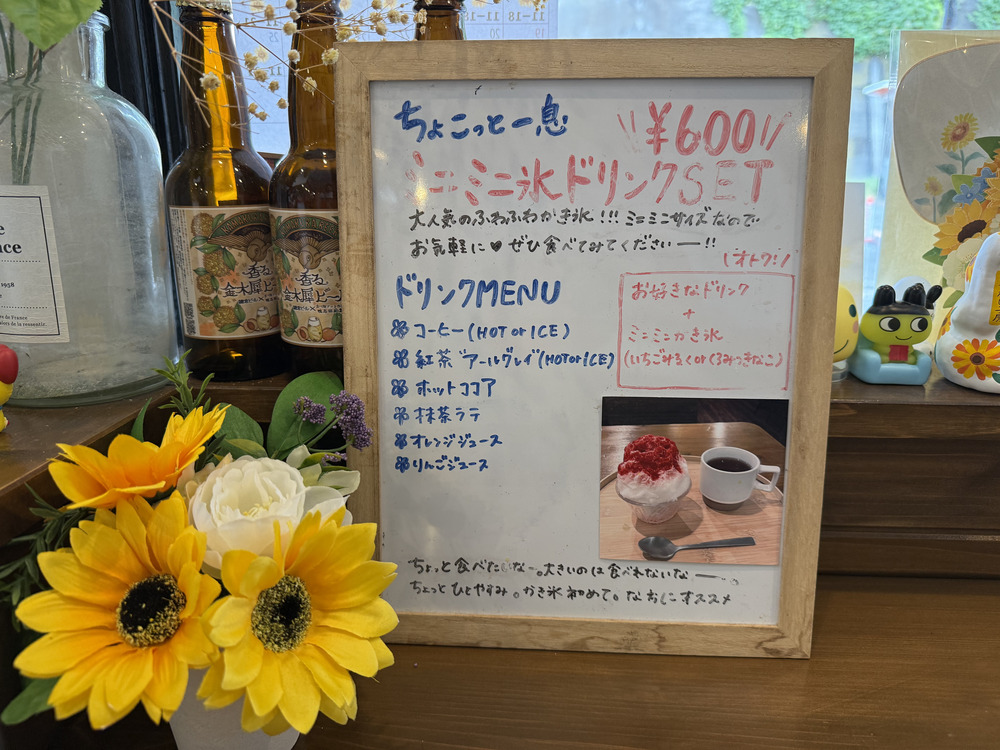 ちょこっと一息
¥600
ミニミニ氷ドリンクSET
大人気のふわふわかき氷!!! ミニミニサイズなので
お気軽に♥ぜひ食べてみてくださいー!!
ドリンクMENU
コーヒー(HOT or ICE)
紅茶 アールグレイ(HOT or ICE)
ホットココア
抹茶ラテ
オレンジジュース
りんごジュース
オトク!
お好きなドリンク
+
ミニミニかき氷
(いちごみるく or くるみつきなこ)
ちょっと食べたいなー。大きいのは食べれないなー
ちょっとひとやすみ。かき氷初めて。なおしにオススメ
香る
金木犀ビール
香る
金木犀ビール
11-18
11-18
1958